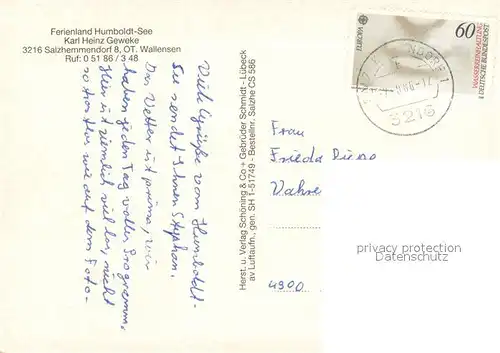 Ferienland Humboldt-See
Karl Heinz Geweke
3216 Salzhemmendorf 8, OT. Wallensen
Ruf: 0 51 86 / 3 48
Viele Grüße vom Humboldt-
See sendet Ihnen Stephan.
Das Wetter ist prima, wir
haben jeden Tag volles Programm.
Hier ist ziemlich viel los, nicht
so trostlos wie auf dem Foto.
Herst. u. Verlag Schöning & Co + Gebrüder Schmidt - Lübeck
av Luftaufn., gen. SH 1-51749 - Bestellnr. Salzhe CS 586
EUROPA
60
WASSERREINHALTUNG
DEUTSCHE BUNDESPOST
3216
Frau
Frieda
4900
privacy protection
Datenschutz